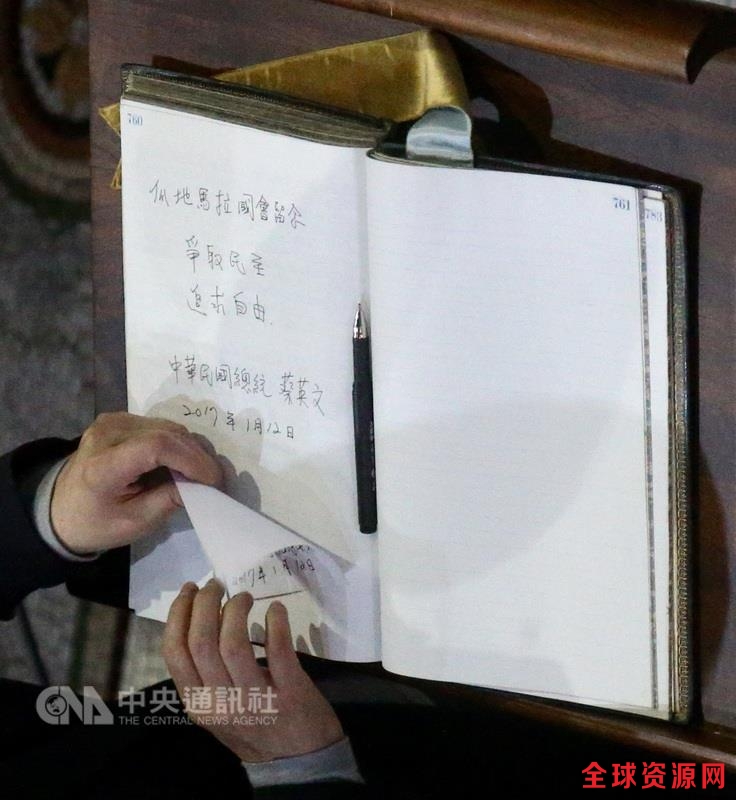 760
瓜地馬拉國會留念
爭取民主
追求自由.
中華民國總統 蔡英文
2017年1月12日
2017年1月12日
761
783
CNA 中央通訊社
THE CENTRAL NEWS AGENCY
全球资源网